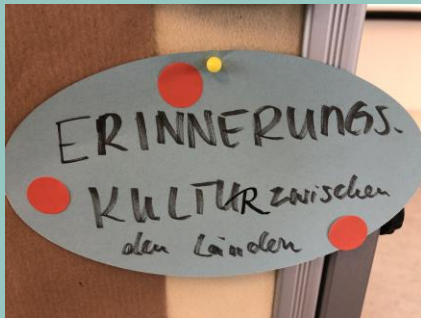 ERINNERUNGS.
KULTUR zwischen
den Ländern